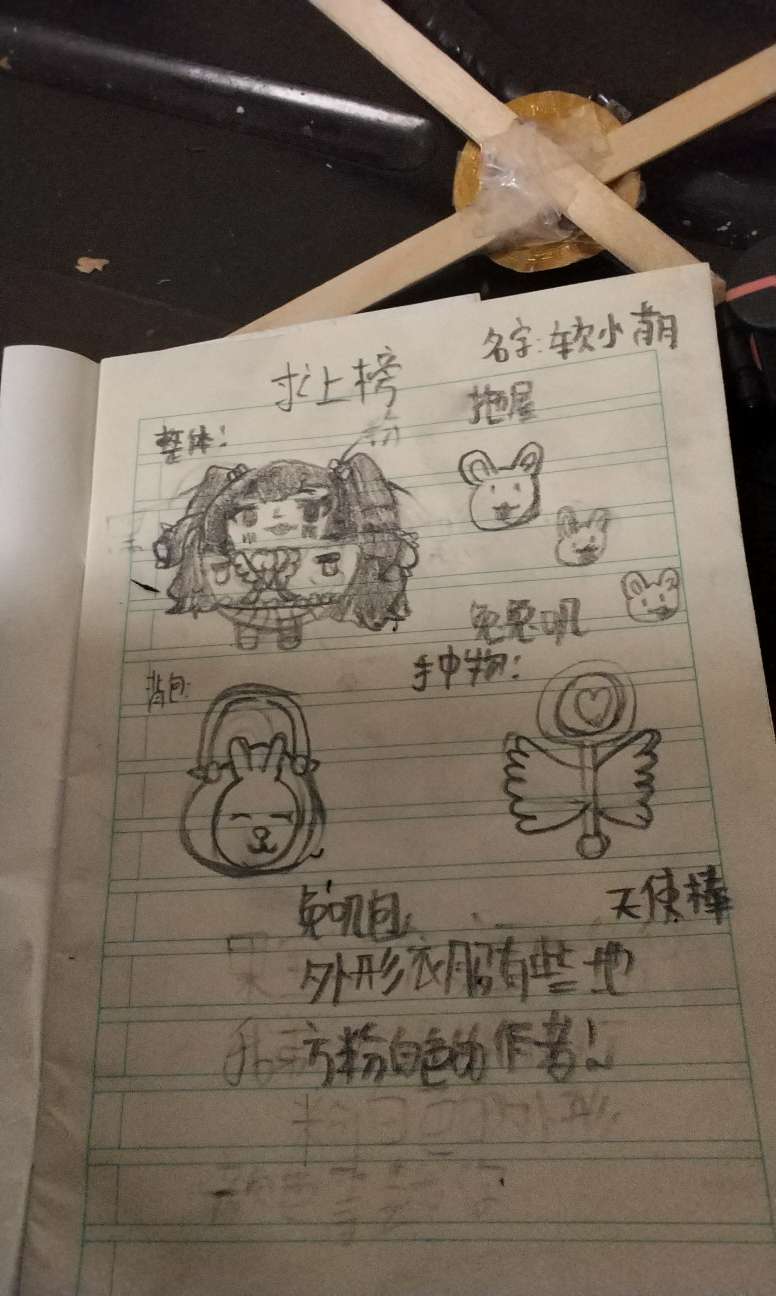 求上榜
名字:软小萌
整体!
粉
拖尾
兔兔叽
背包:
手中物:
兔叽包
天使棒
外形衣服有些地
方粉白色的作者!